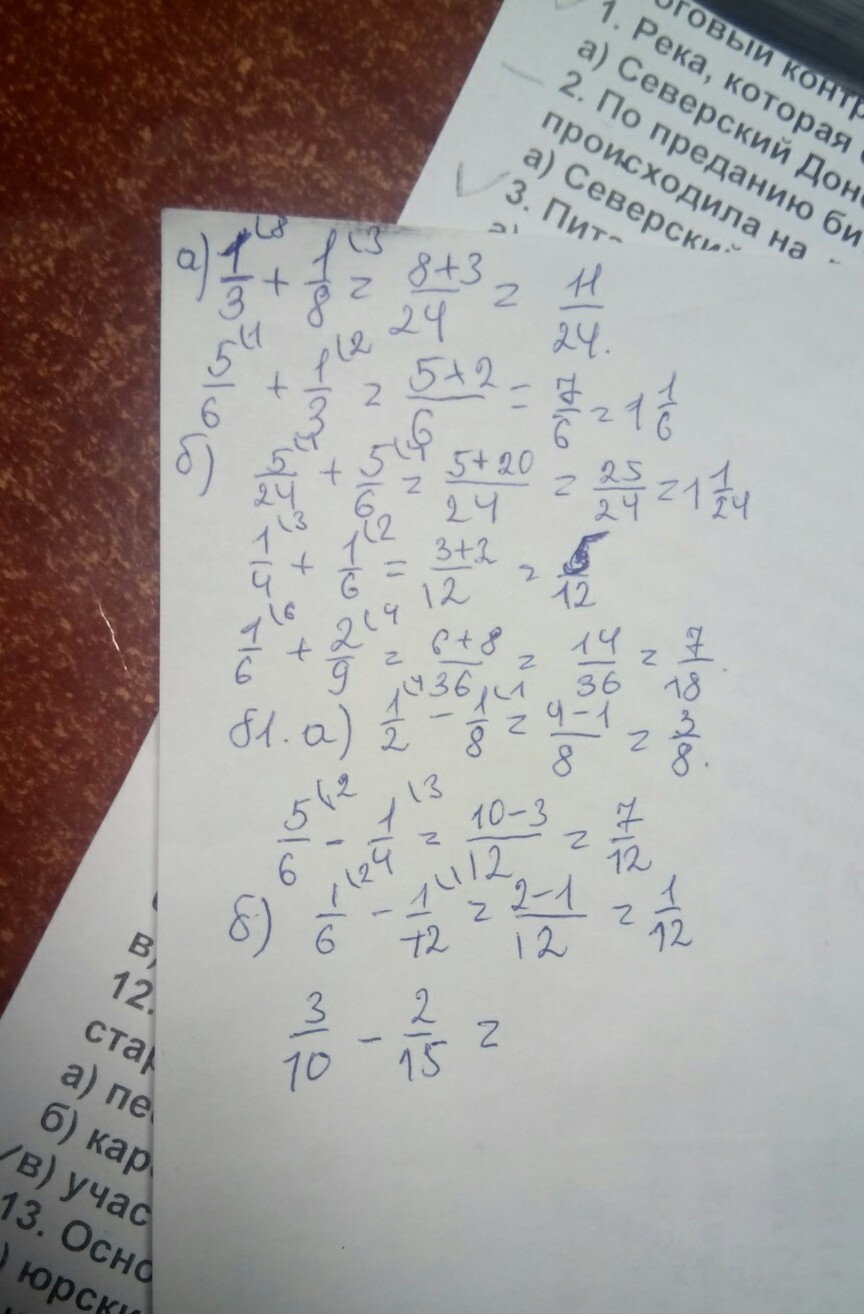 оговый контр
1. Река, которая
а) Северский Дон
2. По преданию би
происходила на
а) Северский
3. Пит
а) 1/3 \8 + 1/8 \3 = 8+3/24 = 11/24.
5/6 \1 + 1/3 \2 = 5+2/6 = 7/6 = 1 1/6
б) 5/24 \1 + 5/6 \4 = 5+20/24 = 25/24 = 1 1/24
1/4 \3 + 1/6 \2 = 3+2/12 = 5/12
1/6 \6 + 2/9 \4 = 6+8/36 = 14/36 = 7/18.
81. а) 1/2 \4 - 1/8 \1 = 4-1/8 = 3/8.
5/6 \2 - 1/4 \3 = 10-3/12 = 7/12
б) 1/6 \2 - 1/12 \1 = 2-1/12 = 1/12
3/10 - 2/15 =
в)
12.
стар
а) пе
б) кар
в) учас
13. Осно
) юрски